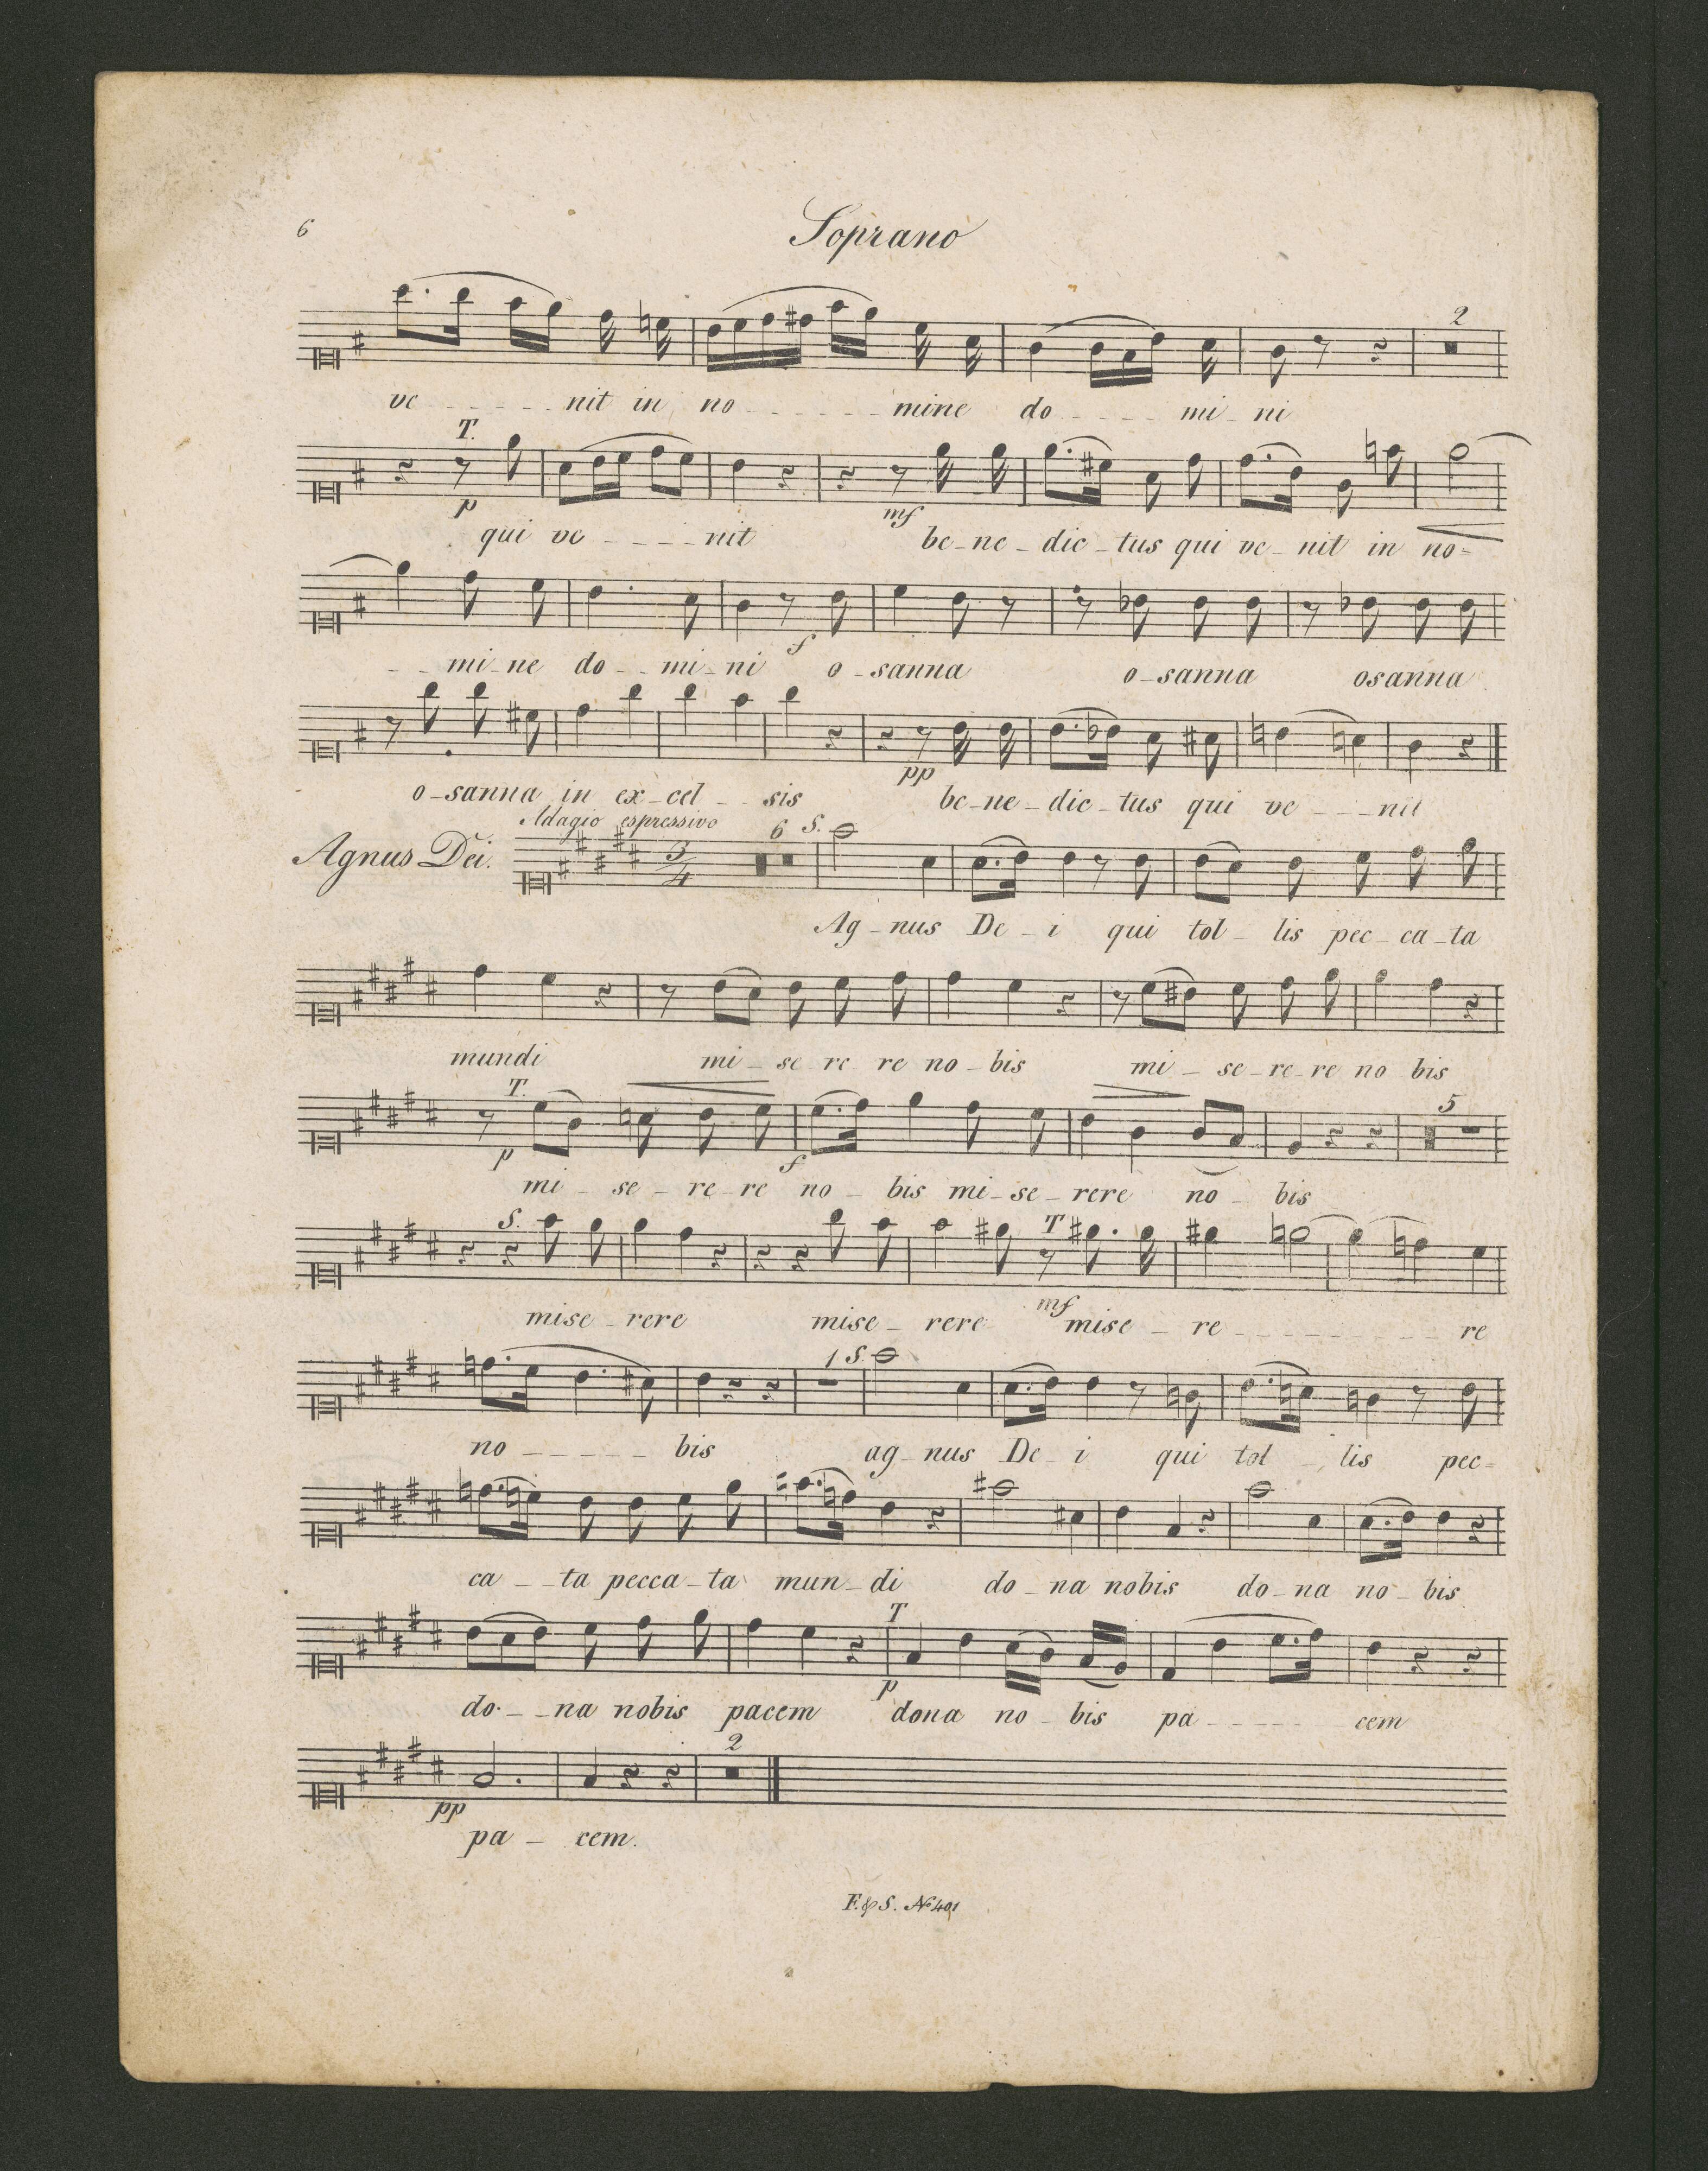 6
Soprano
2
ve - - - - - nit in no - - - - - - mine do - - - - mi - ni
T.
p mf
qui ve - - - - nit be - ne - dic - tus qui ve - nit in no =
f
- - mi - ne do - - mi - ni o - sanna o - sanna osanna
pp
o - sanna in ex - cel - - sis be - ne - dic - tus qui ve - - - nit
Adagio espressivo
Agnus Dei. 3/4 6 S.
Ag - nus De - i qui tol - lis pec - ca - ta
mundi mi - se re re no - bis mi - se - re - re no bis
T. 5
p f
mi - se - re - re no - bis mi - se - rere no - bis
S. T
mf
mise - rere mise - rere mise - re - - - - - - - - re
1 S.
no - - - - - bis ag - nus De - i qui tol - lis pec =
ca - - ta pecca - ta mun - di do - na nobis do - na no - bis
T
p
do - - na nobis pacem dona no - bis pa - - - - - cem
2
pp
pa - cem.
F. & S. No 401